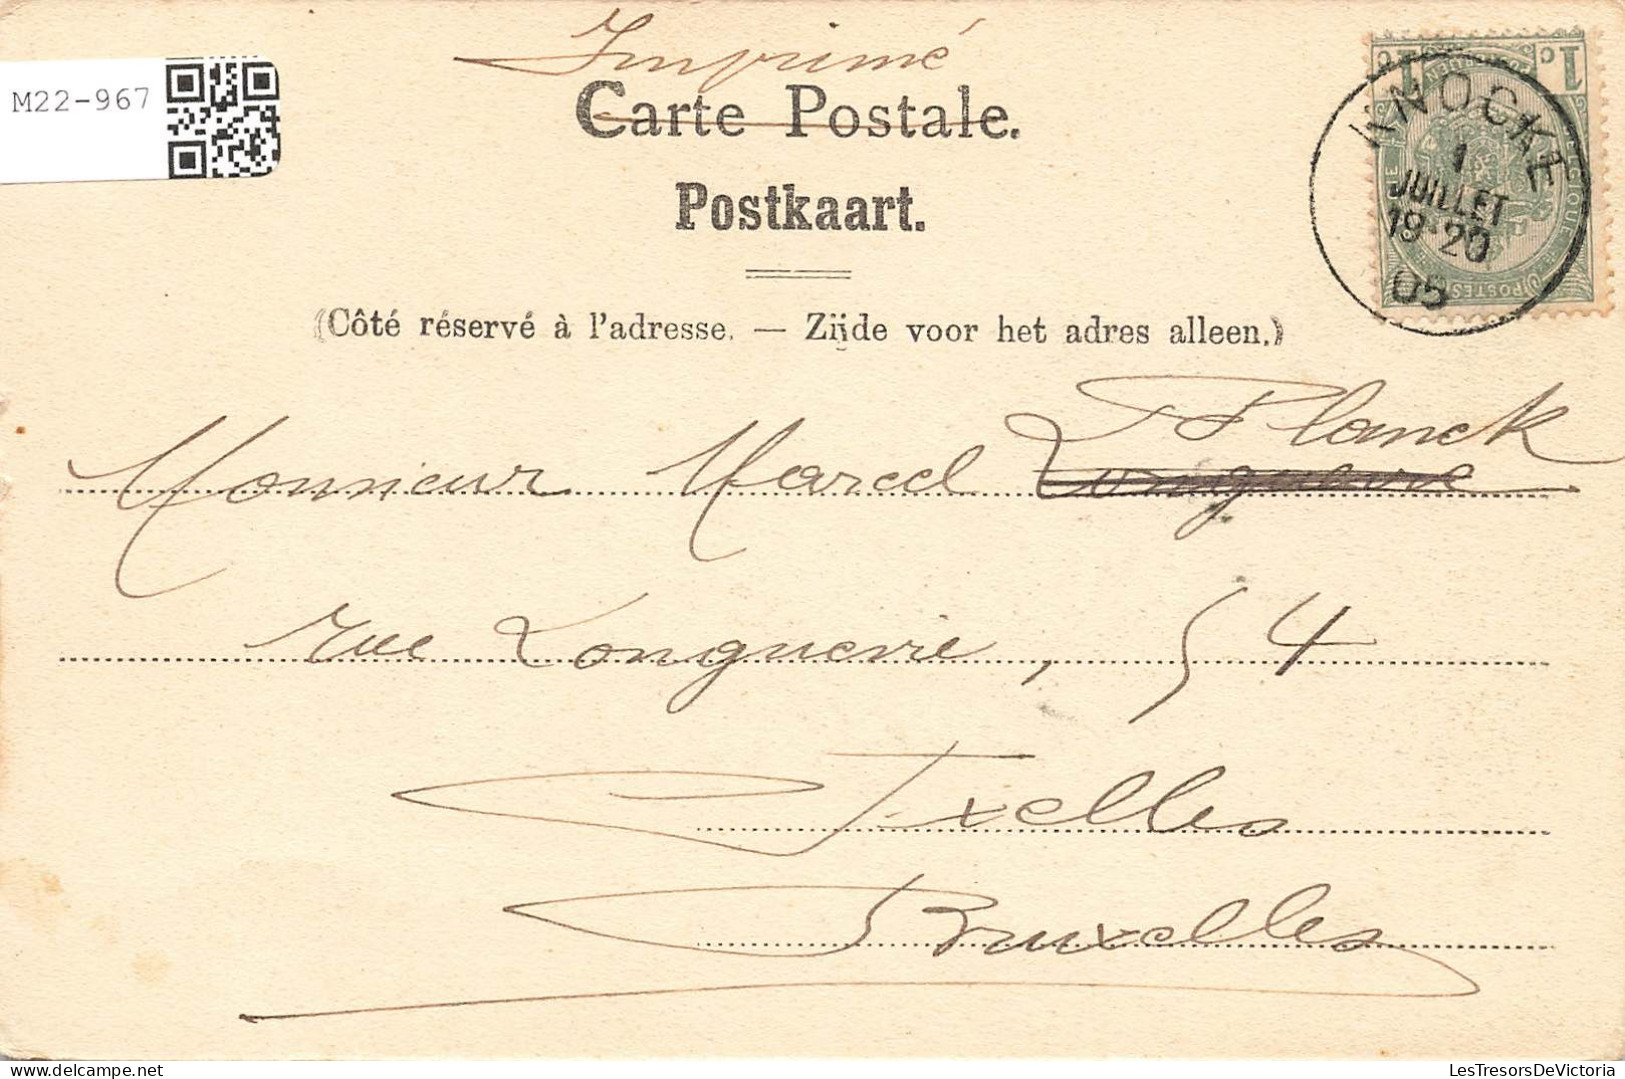 Imprimé
M22-967
Carte Postale.
Postkaart.
(Côté réservé à l'adresse. — Zijde voor het adres alleen.)
1 c 1 c
KNOCKE
1
JUILLET
19-20
05
POSTES
Planck
Monsieur Marcel Longuevie
rue Longuevie, 54
Ixelles
Bruxelles
LesTresorsDeVictoria